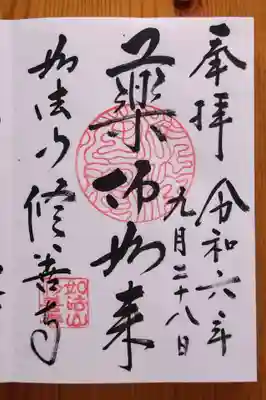 奉拝
令和六年
九月二十八日
薬師如来
如法山
修善寺